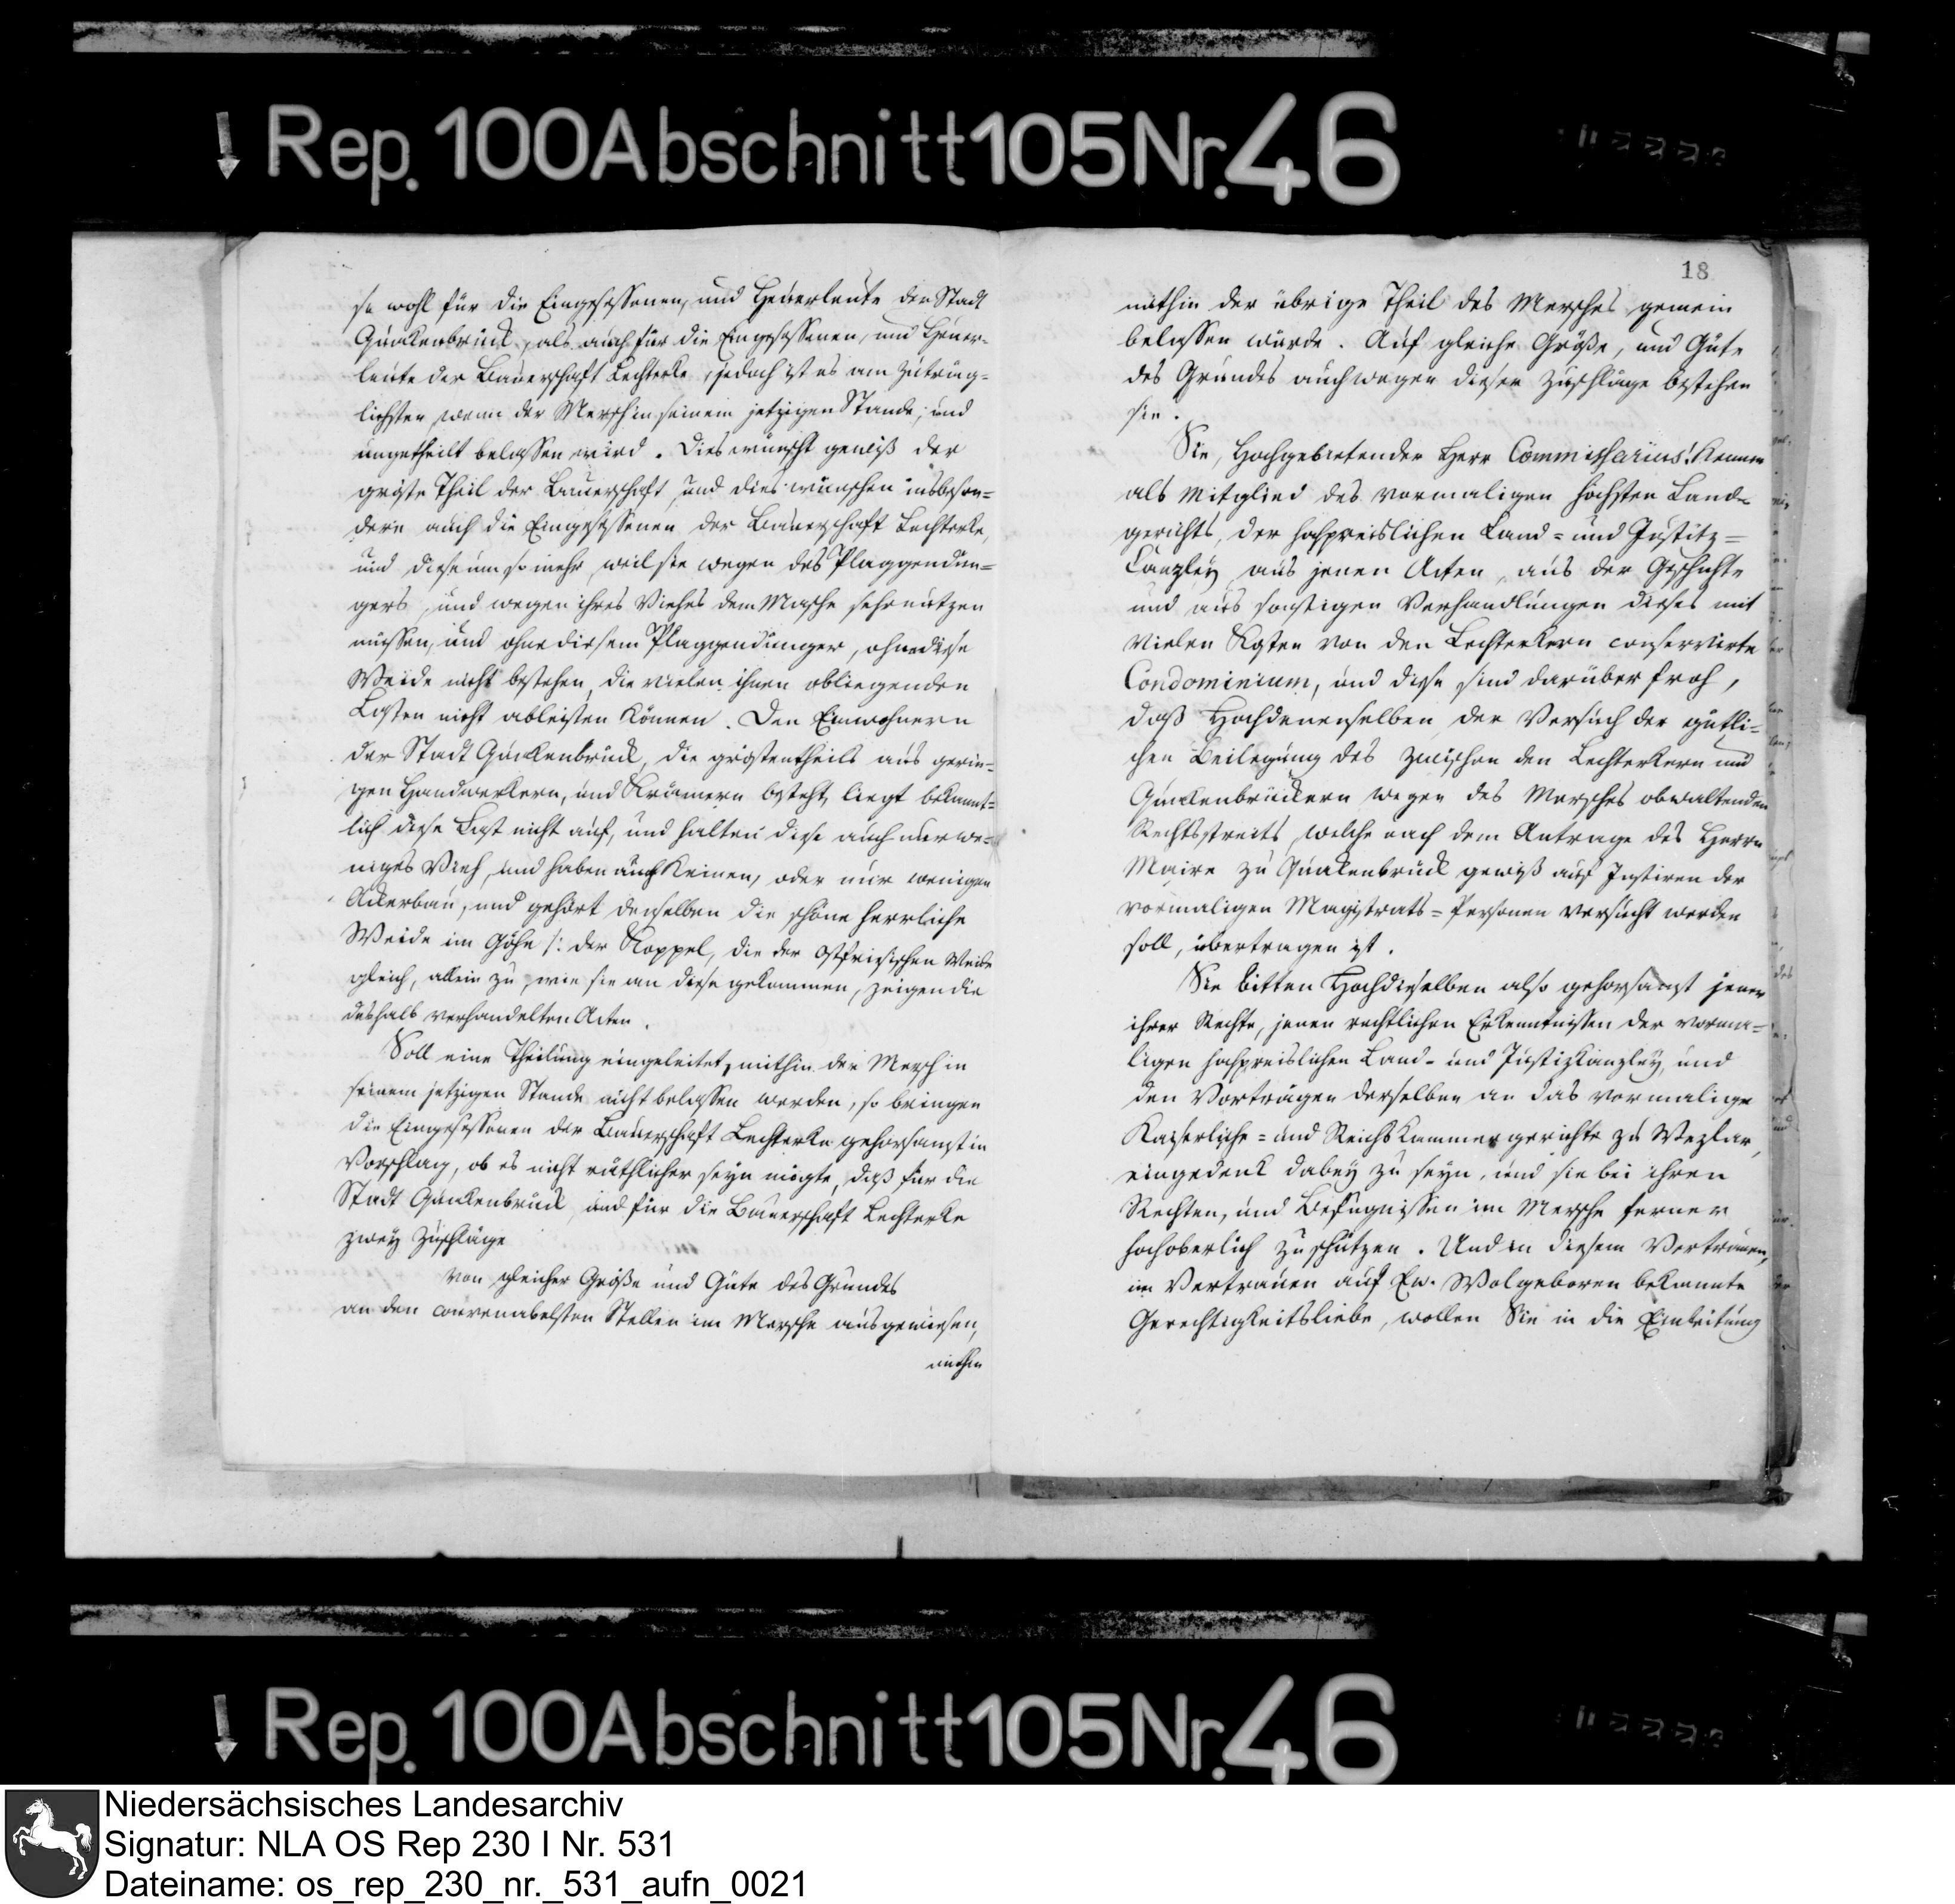 Rep. 100 Abschnitt 105 Nr. 46
so wohl für die Eingesessenen, und Heuerleute der Stadt
Quakenbrück, als auch für die Eingesessenen, und Heuer-
leute der Bauerschaft Lechterke, jedoch ist es am zuträg-
lichsten wenn der Mersch in seinem jetzigen Stande, und
ungetheilt belassen wird. Dies wünscht gewiß der
gröste Theil der Bauerschaft, und dies wünschen insbeson-
dere auch die Eingesessenen der Bauerschaft Lechterke,
und diese um so mehr, weil sie wegen des Plaggendün-
gers, und wegen ihres Viehes dem Mersche sehr nutzen
müssen, und ohne diesem Plaggendünger, ohne diese
Weide nicht bestehen, die vielen ihnen obliegenden
Lasten nicht ableisten können. Den Einwohnern
der Stadt Quakenbrück, die gröstentheils aus gerin-
gen Handwerkern, und Krämern besteht, liegt bekannt-
lich diese Last nicht auf, und halten diese auch nur we-
niges Vieh, und haben auch keinen, oder nur wenigen
Ackerbau, und gehört denselben die schöne herrliche
Weide im Gohe /: der Koppel, die der Ostfrisischen Weide
gleich, allein zu, wie sie an diese gekommen, zeigen die
deshalb verhandelten Acten.
Soll eine Theilung eingeleitet, mithin der Mersch in
seinem jetzigen Stande nicht belassen werden, so bringen
die Eingesessenen der Bauerschaft Lechterke gehorsamst in
Vorschlag, ob es nicht räthlicher seyn mögte, daß für die
Stadt Quakenbrück und für die Bauerschaft Lechterke
zwey Zuschläge
von gleicher Größe und Güte des Grundes
an den convenabelsten Stellen im Mersche ausgewiesen,
mithin
18
mithin der übrige Theil des Mersches gemein
belassen würde. Auf gleiche Größe, und Güte
des Grundes auch wegen dieser Zuschläge bestehen
sie.
Sie, Hochgebietender Herr Commissarius! kennen
als Mitglied des vormaligen höchsten Land-
gerichts, der hochpreislichen Land- und Justitz-
Canzley aus jenen Acten, aus der Geschichte
und aus sonstigen Verhandlungen dieses mit
vielen Kosten von den Lechterkern conservirte
Condominium, und diese sind darüber froh,
daß Hochdenenselben der Versuch der gütli-
chen Beilegung des zwischen den Lechterkern und
Quakenbrückern wegen des Mersches obwaltenden
Rechtsstreits, welche nach dem Antrage des Herrn
Maire zu Quakenbrück gewiß auf Instiren der
vormaligen Magistrats-Personen versucht werden
soll, übertragen ist.
Sie bitten Hochdieselben also gehorsamst jener
ihrer Rechte, jenen rechtlichen Erkenntnissen der vorma-
ligen hochpreislichen Land- und Justizkanzley, und
den Vorträgen derselben an das vormalige
Kaiserliche- und Reichs Kammergerichte zu Wezlar,
eingedenk dabey zu seyn, und sie bei ihren
Rechten, und Befugnissen im Mersche ferner
hochoberlich zu schützen. Und in diesem Vertrauen,
im Vertrauen auf Ew. Wolgeboren bekannte
Gerechtigkeitsliebe, wollen Sie in die Einleitung
Rep. 100 Abschnitt 105 Nr. 46
Niedersächsisches Landesarchiv
Signatur: NLA OS Rep 230 I Nr. 531
Dateiname: os_rep_230_nr._531_aufn_0021